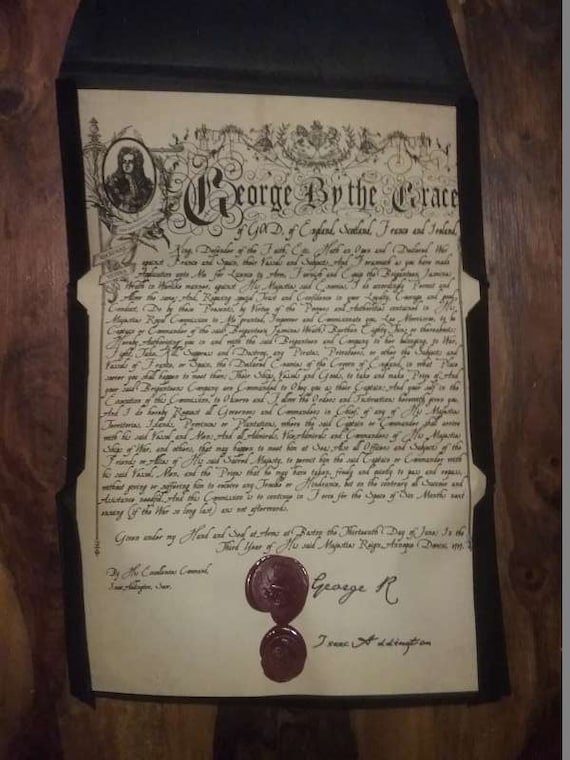 George By the Grace
of GOD, of England, Scotland, France and Ireland,
King, Defender of the Faith Etc. Hath an Open and Declared War
against France and Spain, their Vassals and Subjects, And Forasmuch as you have made
Application unto Me for License to Arm, Furnish and Equip the Brigantoon,
Wrath in Warlike manner, against His Majesties said Enemies, I do accordingly Permit and
Allow the same; And Reposing special Trust and Confidence in your Loyalty, Courage and good
Conduct, Do by these Presents, by Virtue of the Powers and Authorities contained in His
Majesties Royal Commission to Me granted, Impower and Commissionate you, to be
Captain or Commander of the said Brigantoon, Wrath Burthen Eighty Tons or thereabouts:
Hereby Authorizing you in and with the said Brigantoon and Company to her belonging, to War,
Fight, Take, Kill, Suppress and Destroy, any Pirates, Privateers, or other the Subjects and
Vassals of France, or Spain, the Declared Enemies of the Crown of England, in what Place
soever you shall happen to meet them; Their Ships, Vessels and Goods, to take and make Prize of, And
your said Brigantoons Company are Commanded to Obey you as their Captain; And your self in the
Execution of this Commission, to Observe and Follow the Orders and Instructions herewith given you.
And I do hereby Request all Governors and Commanders in Chief, of any of His Majesties
Territories, Islands, Provinces or Plantations, where the said Captain or Commander shall arrive
with his said Vessel and Men; And all Admirals, Vice Admirals and Commanders of His Majesties
Ships of War, and others, that may happen to meet him at Sea; Also all Officers and Subjects of the
Friends or Allies of His said Sacred Majesty, to permit him the said Captain or Commander with
his said Vessel, Men, and the Prizes that he may have taken, freely and quietly to pass and repass,
without giving or suffering him to receive any Trouble or Hindrance, but on the contrary all Succour and
Assistance needful. And this Commission is to continue in Force for the Space of Six Months next
ensuing (if the War so long last) and not afterwards.
Given under my Hand and Seal at Arms at Boston the Thirteenth Day of June: In the
Third Year of His said Majesties Reign, Annoque Domini,
By His Excellencies Command,
Isaac Addington, Secr.
George R
Isaac Addington